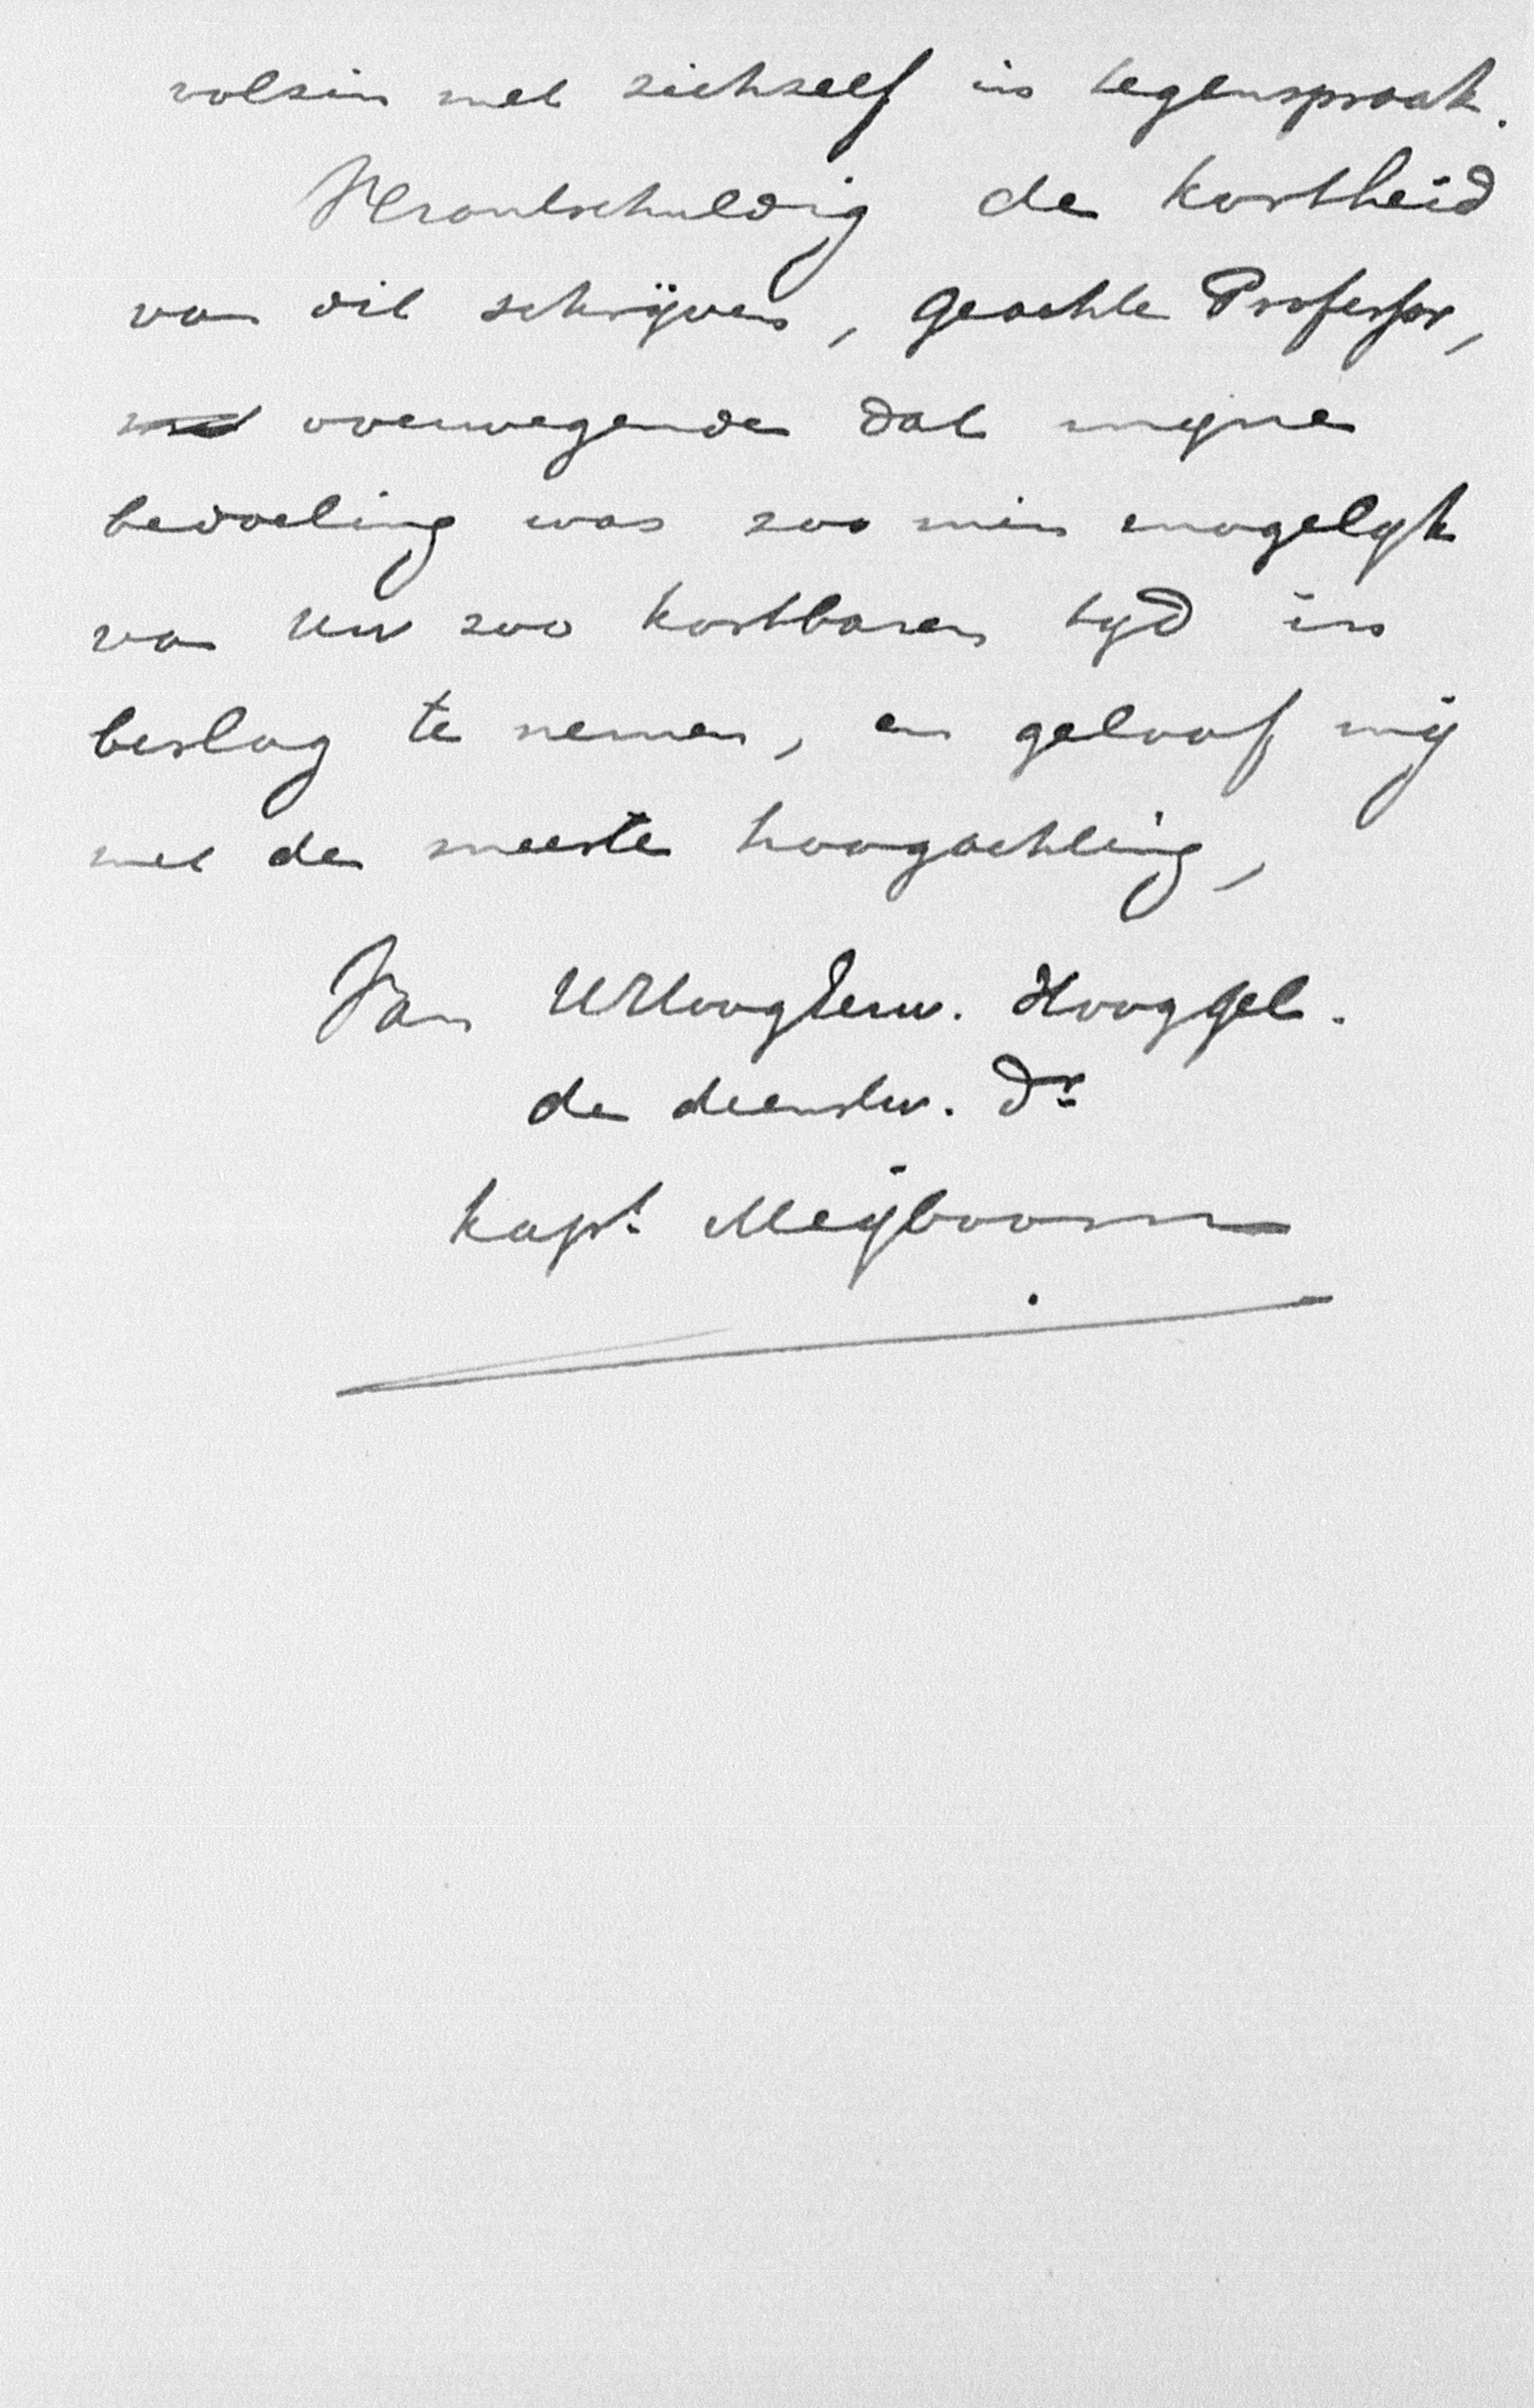 volzin met zichzelf in tegenspraak.
Verontschuldig de kortheid
van dit schrijven, geachte Professor,
overwegende dat mijne
bedoeling was zoo min mogelijk
van Uw zoo kostbaren tijd in
beslag te nemen, en geloof mij
met de meeste hoogachting,
Van UHoogEerw. HoogGel.
de dienstw. Dr
Kapt Meijboom